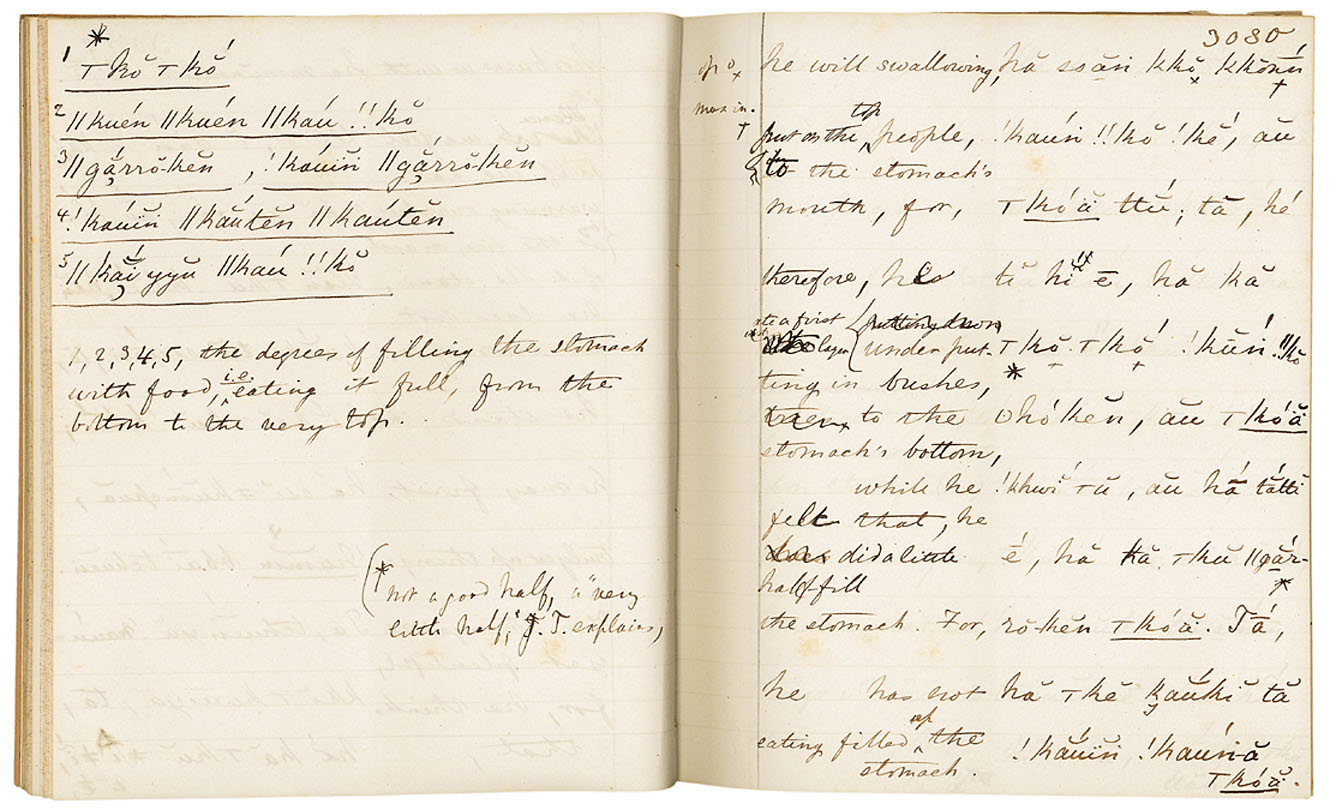 1 * ⊤kŏ ⊤kŏ́
2 ǁkuén ǁkuén ǁkaú !!kŏ
3 ǁgắrrŏ-kĕn , !káuïn ǁgắrrŏ-kĕn
4 !káuïn ǁkaútĕn ǁkaútĕn
5 ǁkắĭ yyŭ ǁkaú !!kŏ
1, 2, 3, 4, 5, the degrees of filling the stomach
with food, i.e. eating it full, from the
bottom to the very top.
(* not a good half, "a very
little half," J. T. explains,
3080
he will swallowing, hă ssăn kkŏ, kkŏnń
put on the top people, !kaúïn !!kŏ !ké, aŭ
to the stomach's
mouth, for, ⊤kóä ttú, tă, hé
therefore, he tĭ hĭ ē, hă kă
ate a first layer (putting down
under put- ⊤kŏ ⊤kŏ́ !kŭń !!kŏ
ting in bushes, *
to the ʘhókĕn, aŭ ⊤kóä
stomach's bottom,
while he !khwĭ ⊤ŭ, aŭ hắ tắttĭ
felt that, he
did a little é, hă kă ⊤kŭ ǁgăr-
half-fill *
the stomach. For, rŏ-kĕn ⊤kóä. Tắ,
he has not hă ⊤kĕ kaúkĭ tă
eating filled up the !káuïn !kaúïn-ă
stomach. ⊤kóä.